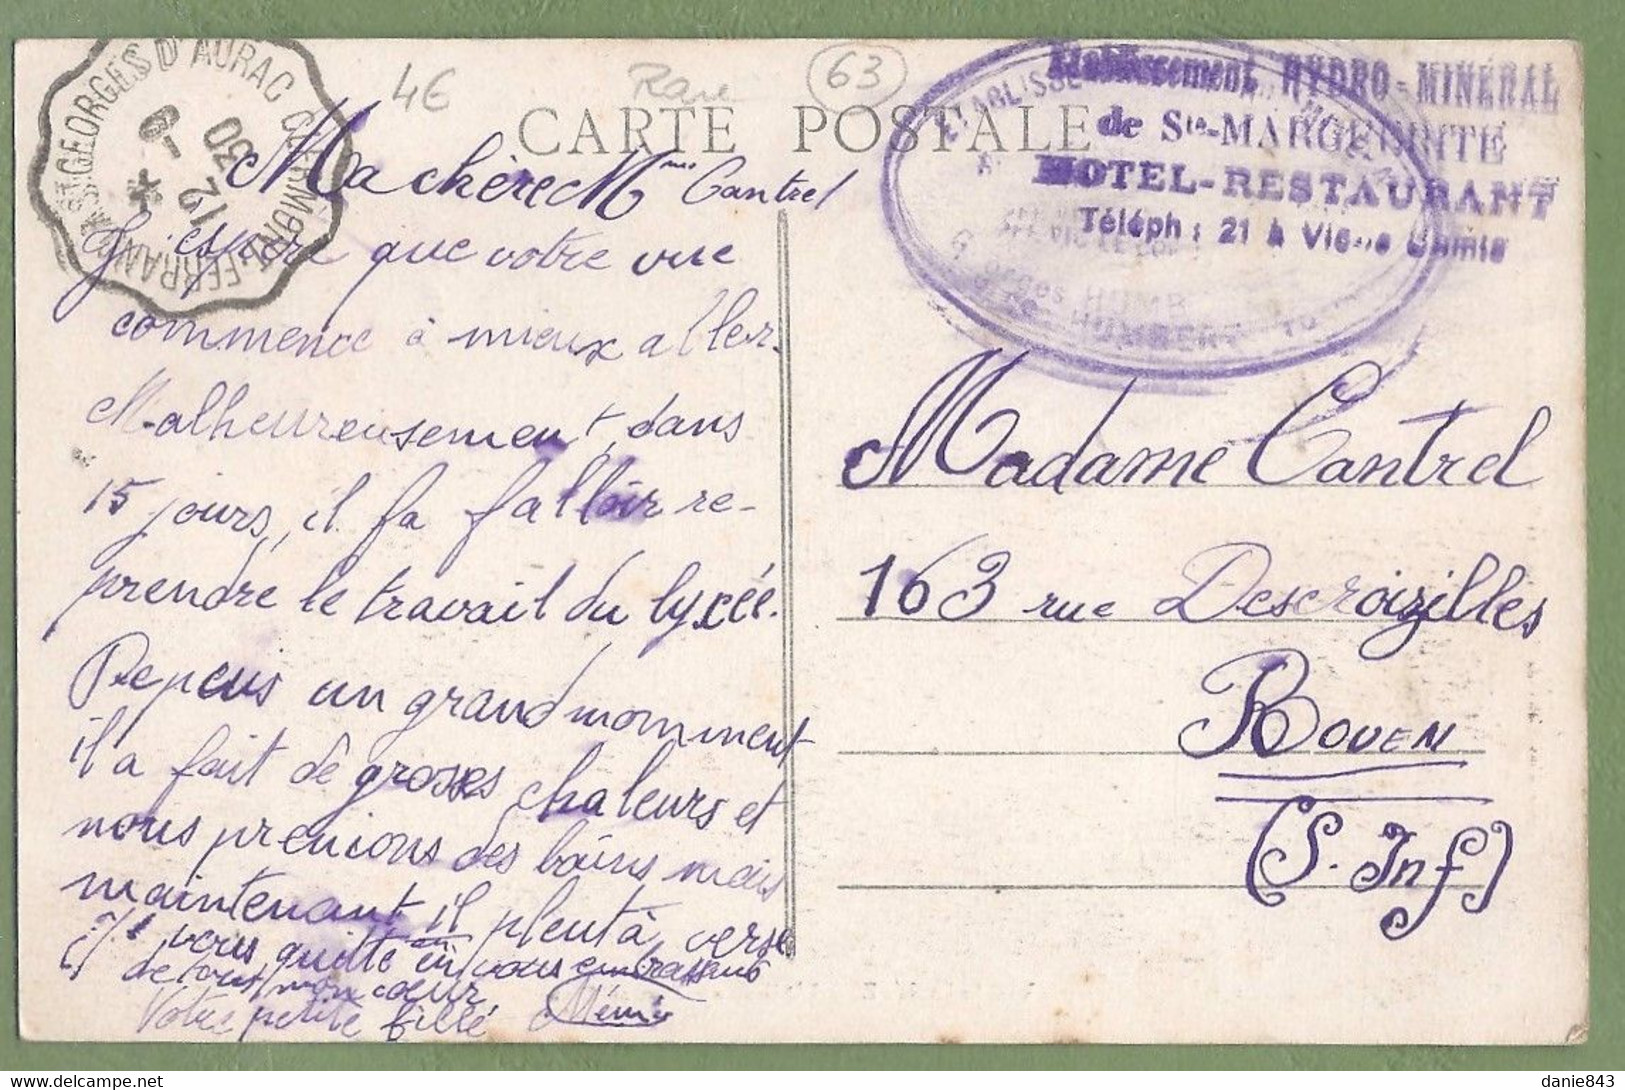 4€
Rare
63
CARTE POSTALE
ST GEORGES D'AURAC CLERMONT-FERRAND
12 30
Etablissement HYDRO-MINÉRAL
de Ste-MARGUERITE
HOTEL-RESTAURANT
Téléph : 21 à Vic-le-Comte
HUMBERT
Ma chère Mme Cantrel
J'espère que votre vue
commence à mieux aller.
Malheureusement, dans
15 jours, il fa falloir re-
prendre le travail du lycée.
Depeuis un grand momment
il a fait de grosses chaleurs et
nous prenions des bains mais
maintenant il pleut à verse
Je vous quitte en vous embrassant
de tout mon cœur
Votre petite fille Mémie
Madame Cantrel
163 rue Descroizilles
ROUEN
(S. Inf)
danie843